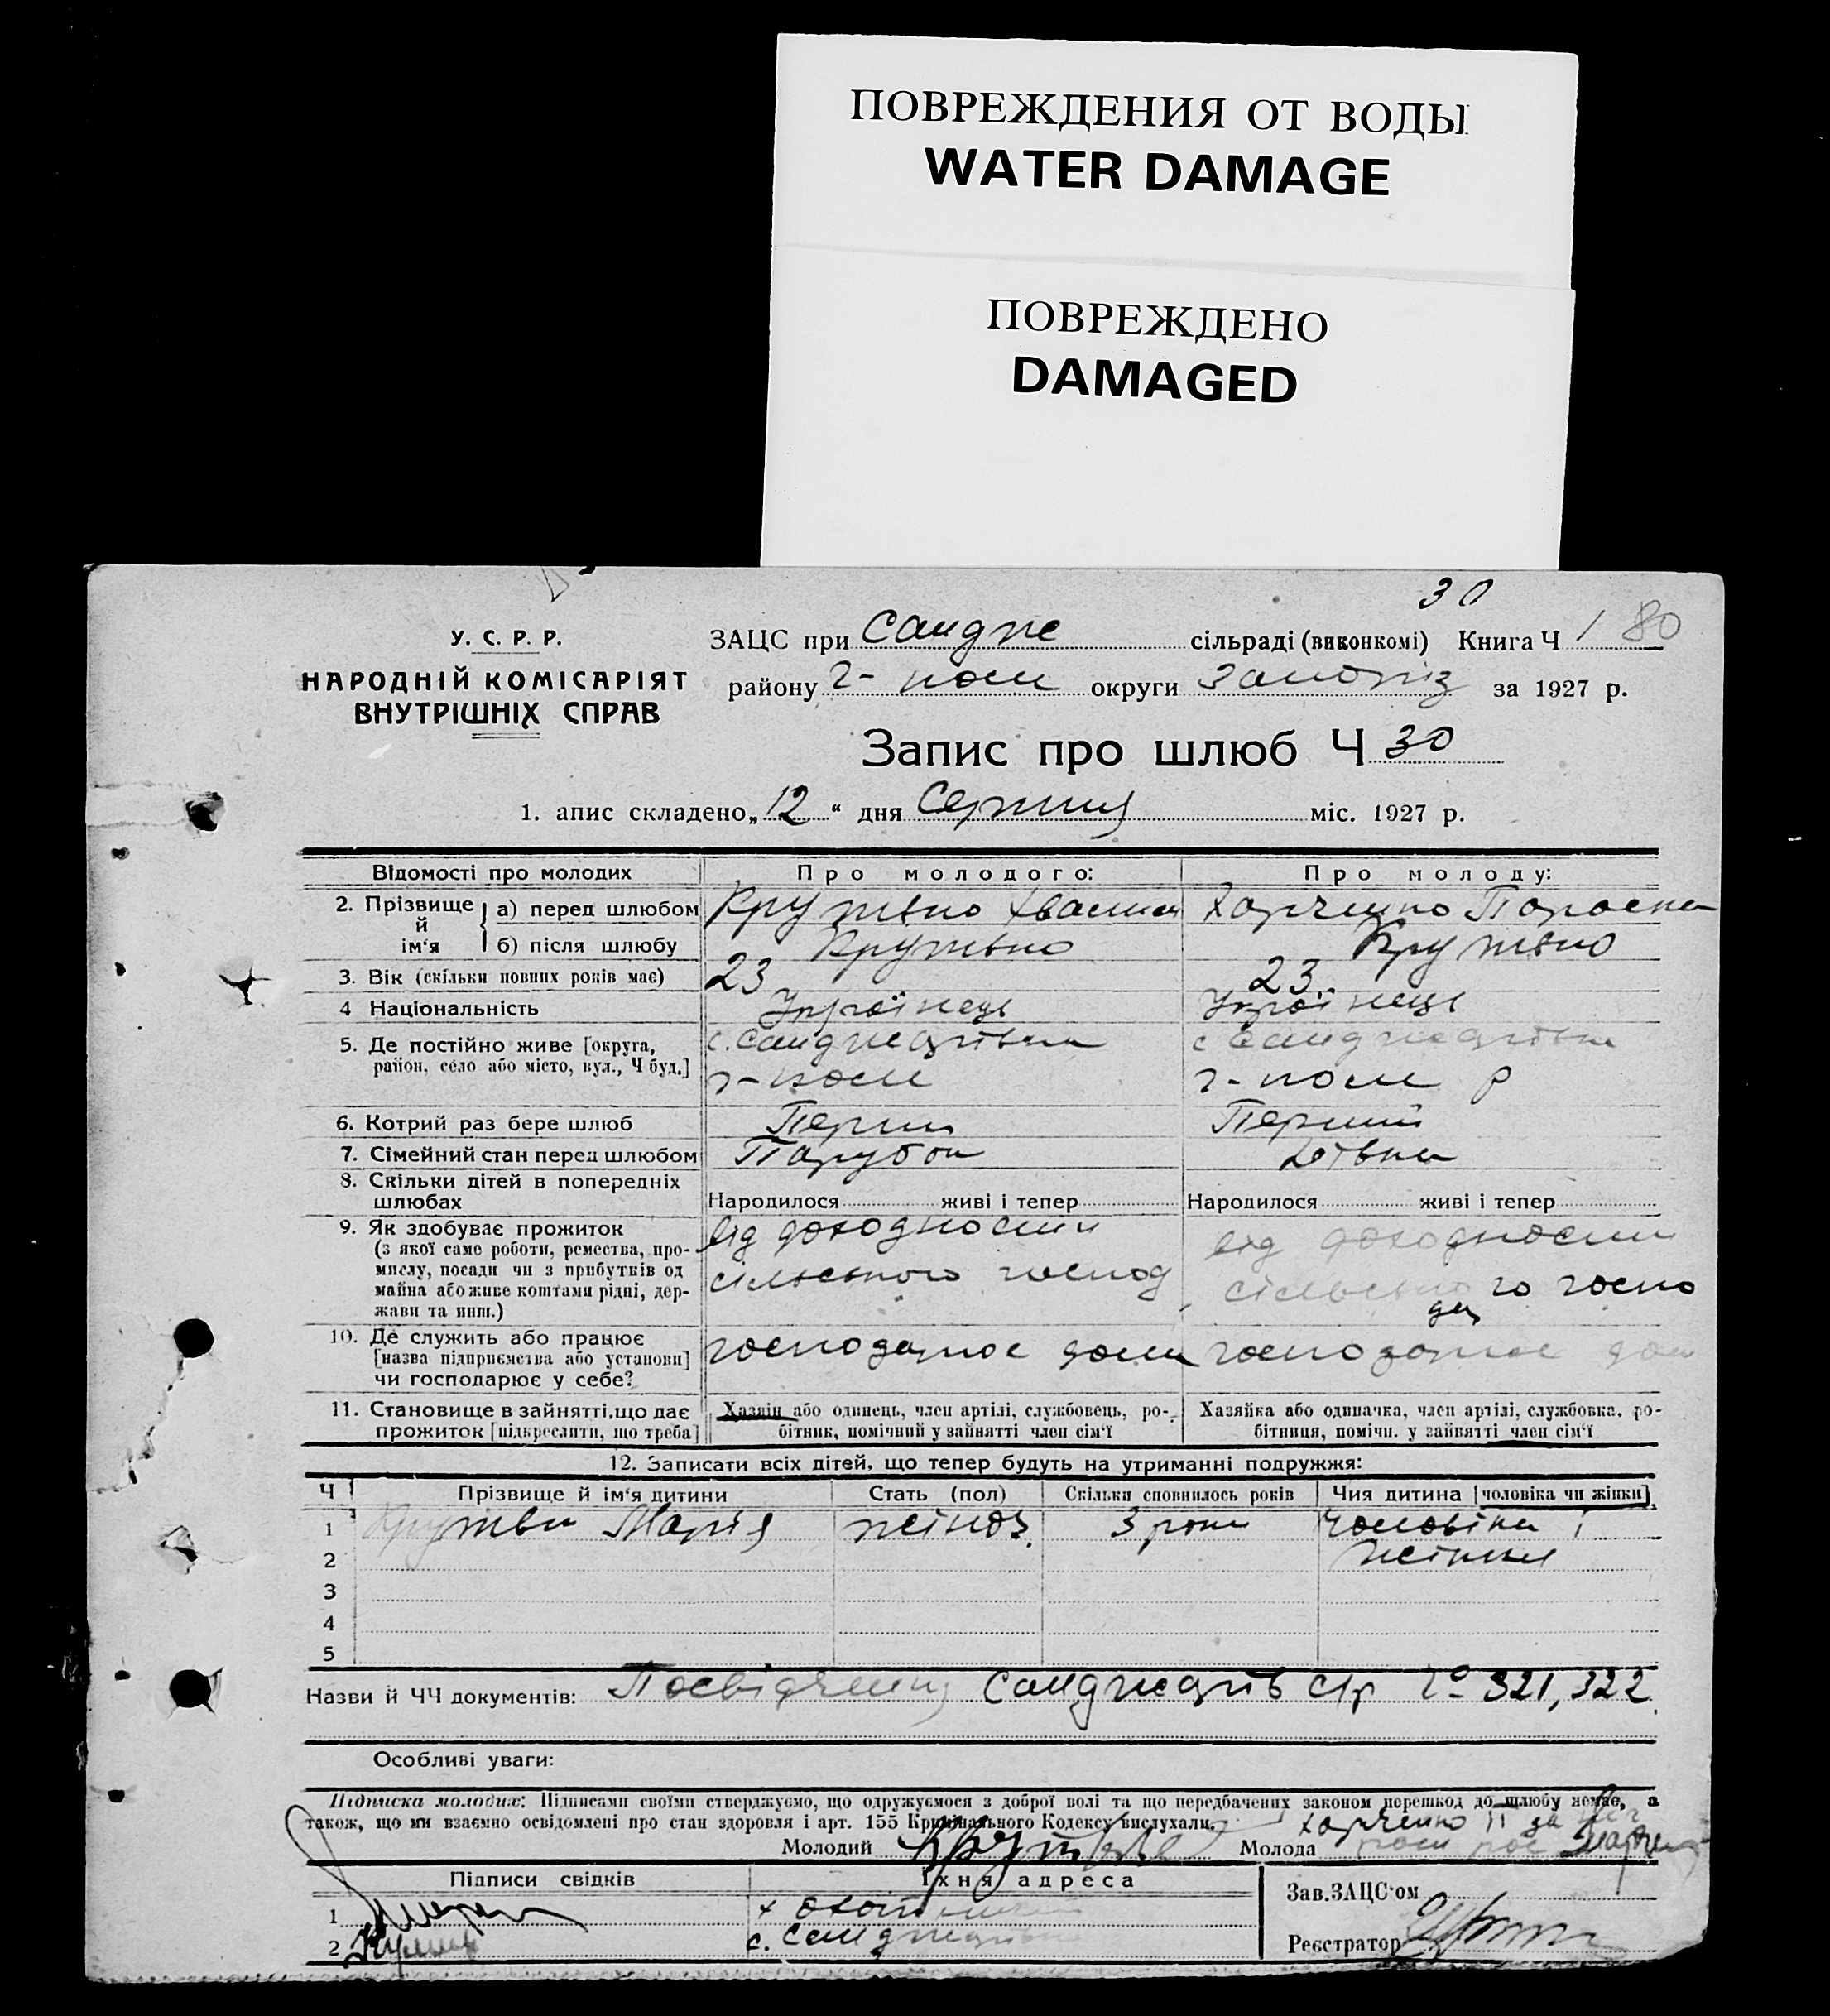 ПОВРЕЖДЕНИЯ ОТ ВОДЫ
WATER DAMAGE
ПОВРЕЖДЕНО
DAMAGED
30
У. С. Р. Р.
НАРОДНІЙ КОМІСАРІЯТ
ВНУТРІШНІХ СПРАВ
ЗАЦС при Сандже сільраді (виконкомі) Книга Ч 1 80
району г- поль округи Запоріз за 1927 р.
Запис про шлюб Ч 30
1. апис складено „12“ дня Серпня міс. 1927 р.
Відомості про молодих Про молодого: Про молоду:
2. Прізвище й ім‘я а) перед шлюбом Крутько Харченко Параска
б) після шлюбу Крутько Крутько
3. Вік (скільки повних років має) 23 23
4 Національність Українець Українець
5. Де постійно живе [округа, с. Санджарівка с Санджарівка
район, село або місто, вул., Ч буд.] г- поль г- поль р
6. Котрий раз бере шлюб Перши Перший
7. Сімейний стан перед шлюбом Парубок Дівка
8. Скільки дітей в попередніх
шлюбах Народилося живі і тепер Народилося живі і тепер
9. Як здобуває прожиток від доходности від доходности
(з якої саме роботи, ремества, про-
мислу, посади чи з прибутків од сільського господ сільського госпо
майна або живе коштами рідні, дер- да
жави та инш.)
10. Де служить або працює
[назва підприємства або установи] господарює дома господарює дом
чи господарює у себе?
11. Становище в зайнятті, що дає Хазяїн або одинець, член артілі, службовець, ро- Хазяйка або одиначка, член артілі, службовка, ро-
прожиток [підкреслити, що треба] бітник, помічний у зайнятті член сім‘ї бітниця, помічн. у зайнятті член сім‘ї
12. Записати всіх дітей, що тепер будуть на утриманні подружжя:
Ч Прізвище й ім‘я дитини Стать (пол) Скільки сповнилось років Чия дитина [чоловіка чи жінки]
1 Марія жіноз. 3 роки чоловіка і
2 жінки
3
4
5
Назви й ЧЧ документів: Посвідчення Санджарів с/р № 321, 322
Особливі уваги:
Підписка молодих: Підписами своїми стверджуємо, що одружуємося з доброї волі та що передбачених законом перешкод до шлюбу немає, а
також, що ми взаємно освідомлені про стан здоровля і арт. 155 Кримінального Кодексу вислухали. Харченко П за
Молодий Крутько Молода
Підписи свідків Їхня адреса Зав.ЗАЦС‘ом
1
2 с. Санджарівка Реєстратор